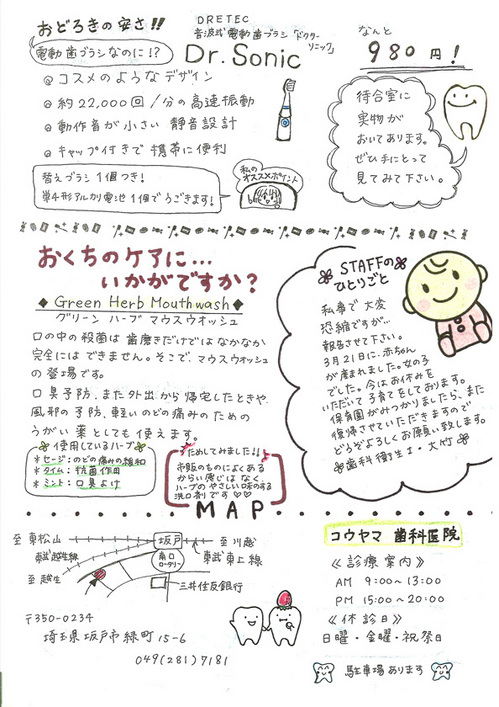 おどろきの安さ!!
電動歯ブラシなのに!?
DRETEC
音波式電動歯ブラシ「ドクターソニック」
Dr.Sonic
なんと
980円!
@コスメのようなデザイン
@約22,000回/分の高速振動
@動作音が小さい 静音設計
@キャップ付きで携帯に便利
替えブラシ1個つき!
単4形アルカリ電池1個でうごきます!
私の
オススメポイント
待合室に
実物が
おいてあります。
ぜひ手にとって
見てみて下さい。
おくちのケアに...
いかがですか?
◆Green Herb Mouthwash◆
グリーン ハーブ マウスウオッシュ
口の中の殺菌は歯磨きだけではなかなか
完全にはできません。そこで、マウスウオッシュ
の登場です。
口臭予防、また外出から帰宅したときや、
風邪の予防、軽いのどの痛みのための
うがい薬としても使えます。
使用しているハーブ
*セージ:のどの痛みの緩和
*タイム:抗菌作用
*ミント:口臭よけ
ためしてみました!!
市販のものによくある
からい感じはなく、
ハーブのやさしい味のする
洗口剤です♡♡
STAFFの
ひとりごと
私事で大変
恐縮ですが...
報告させて下さい。
3月21日に、赤ちゃん
が産まれました。女の子
でした。今はお休みを
いただいて子育てをしております。
保育園がみつかりましたら、また
復帰させていただきますので
どうぞよろしくお願い致します。
歯科衛生士・大竹
MAP
至東松山
坂戸
至川越
東武越生線
南口
ロータリー
東武東上線
至越生
三井住友銀行
〒350-0234
埼玉県坂戸市緑町15-6
049(281)7181
コウヤマ 歯科医院
《診療案内》
AM 9:00~13:00
PM 15:00~20:00
《休診日》
日曜・金曜・祝祭日
駐車場あります